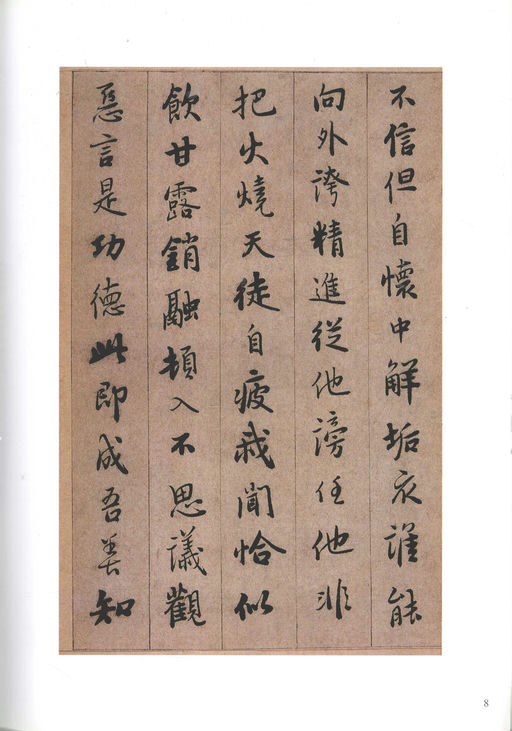 不信但自懷中解垢衣誰能
向外誇精進從他謗任他非
把火燒天徒自疲我聞恰似
飲甘露銷融頓入不思議觀
惡言是功德此即成吾善知
8